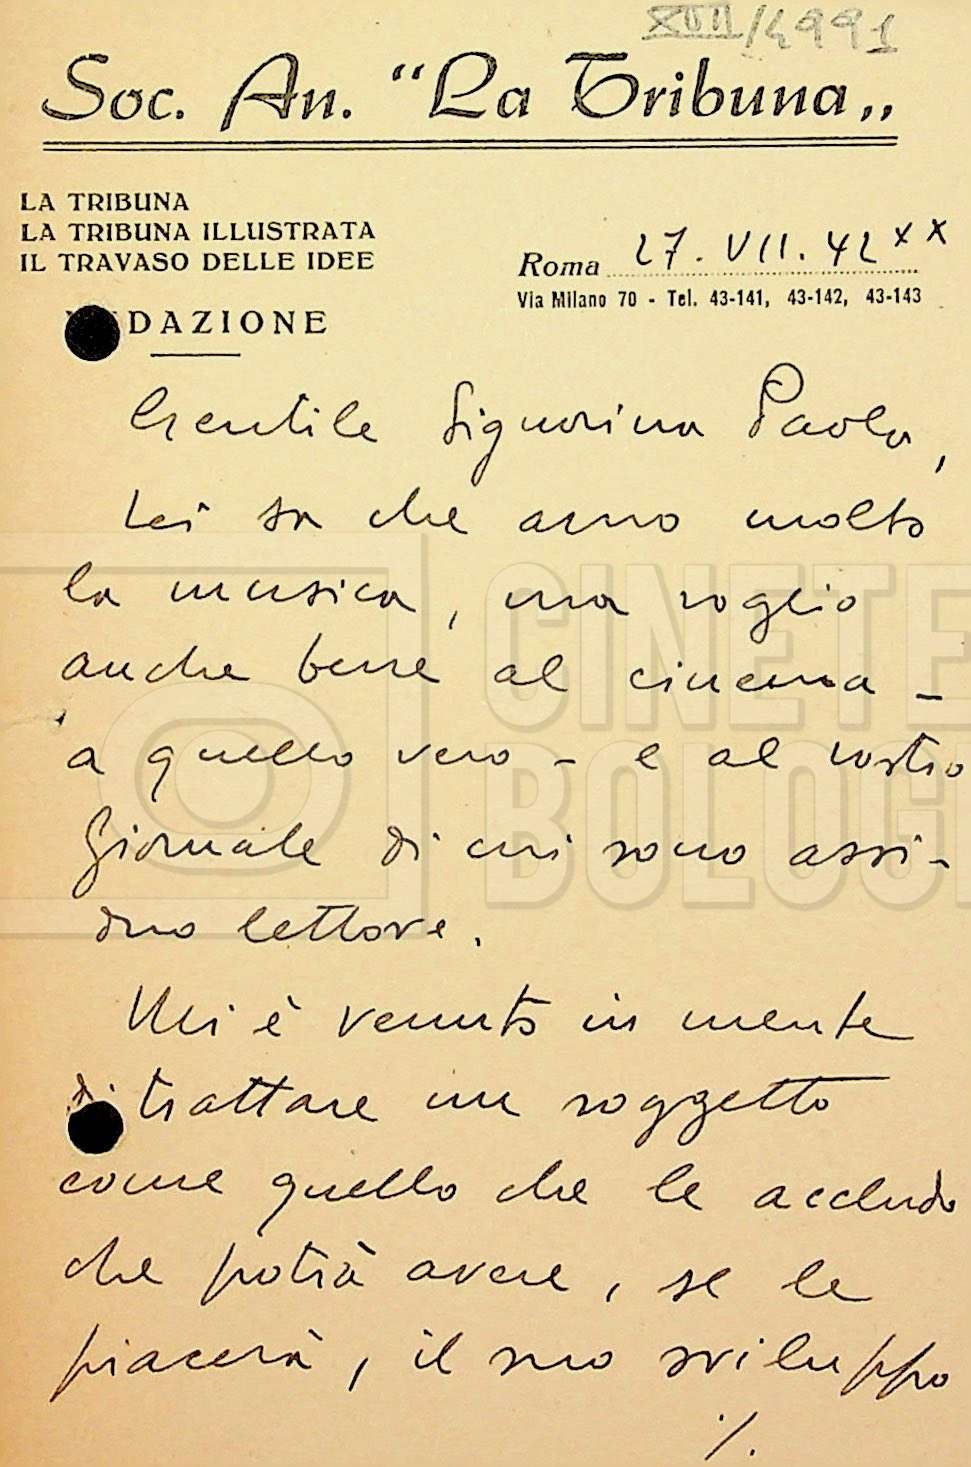 XVII/4991
Soc. An. "La Tribuna„
LA TRIBUNA
LA TRIBUNA ILLUSTRATA
IL TRAVASO DELLE IDEE
Roma 27.VII.42 XX
Via Milano 70 - Tel. 43-141, 43-142, 43-143
DAZIONE
Gentile Signorina Paola,
Lei sa che amo molto
la musica, ma voglio
anche bene al cinema -
a quello vero - e al vostro
Giornale di cui sono assi-
duo lettore.
Mi è venuto in mente
di trattare un soggetto
come quello che le accludo
che potrà avere, se le
piacerà, il suo sviluppo
./.
CINETE
BOLOG